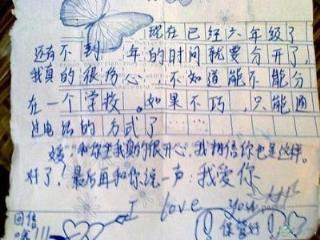 现在已经六年级了
还有不到一年的时间就要分开了,
我真的很伤心,不知道能不能分
在一个学校。如果不巧,只能通
过电话的方式了
和你在我真的很开心,我相信你也是这样。
好了!最后再和你说一声:我爱你
I love you
回信
哦!!!
保管好